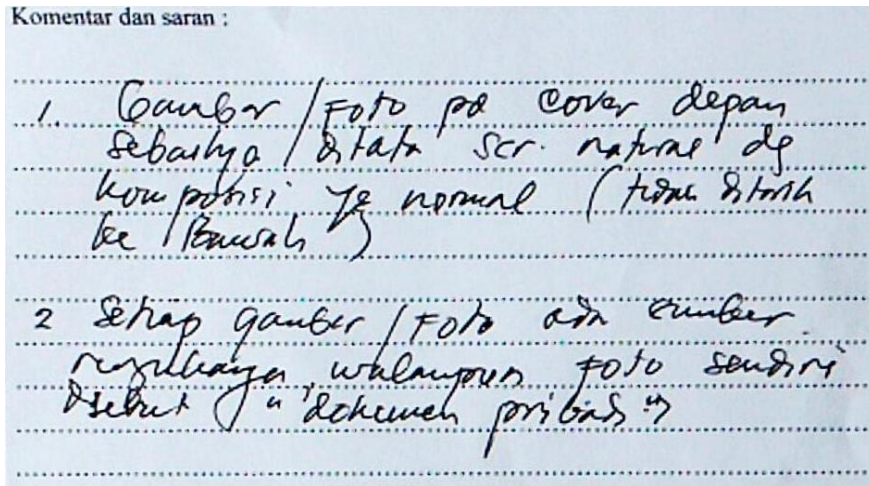 Komentar dan saran :
1. Gambar / Foto pd cover depan
sebaiknya ditata scr. natural dg
komposisi yg normal (tidak ditarik
ke Bawah)
2 Setiap gambar / Foto ada sumber
rujukannya, walaupun foto sendiri
disebut "dokumen pribadi"